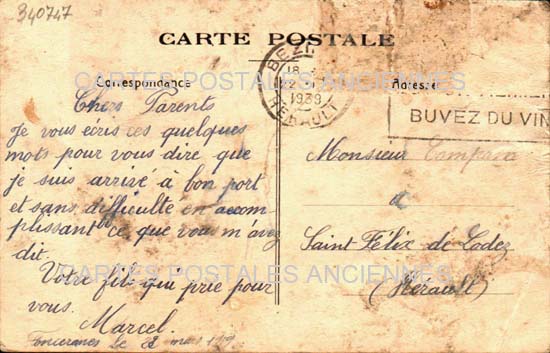 340747
CARTE POSTALE
CARTES POSTALES ANCIENNES
Correspondance
Adresse
BEZI
18
22
1939
HERAULT
BUVEZ DU VIN
Chers Parents
Je vous écris ces quelques
mots pour vous dire que
je suis arrivé à bon port
et sans difficulté en accom-
plissant ce que vous m'avez
dit.
Votre fils qui prie pour
vous.
Marcel.
le 2 mars
Monsieur
à
Saint Félix de Lodez
(Hérault)
CARTES POSTALES ANCIENNES